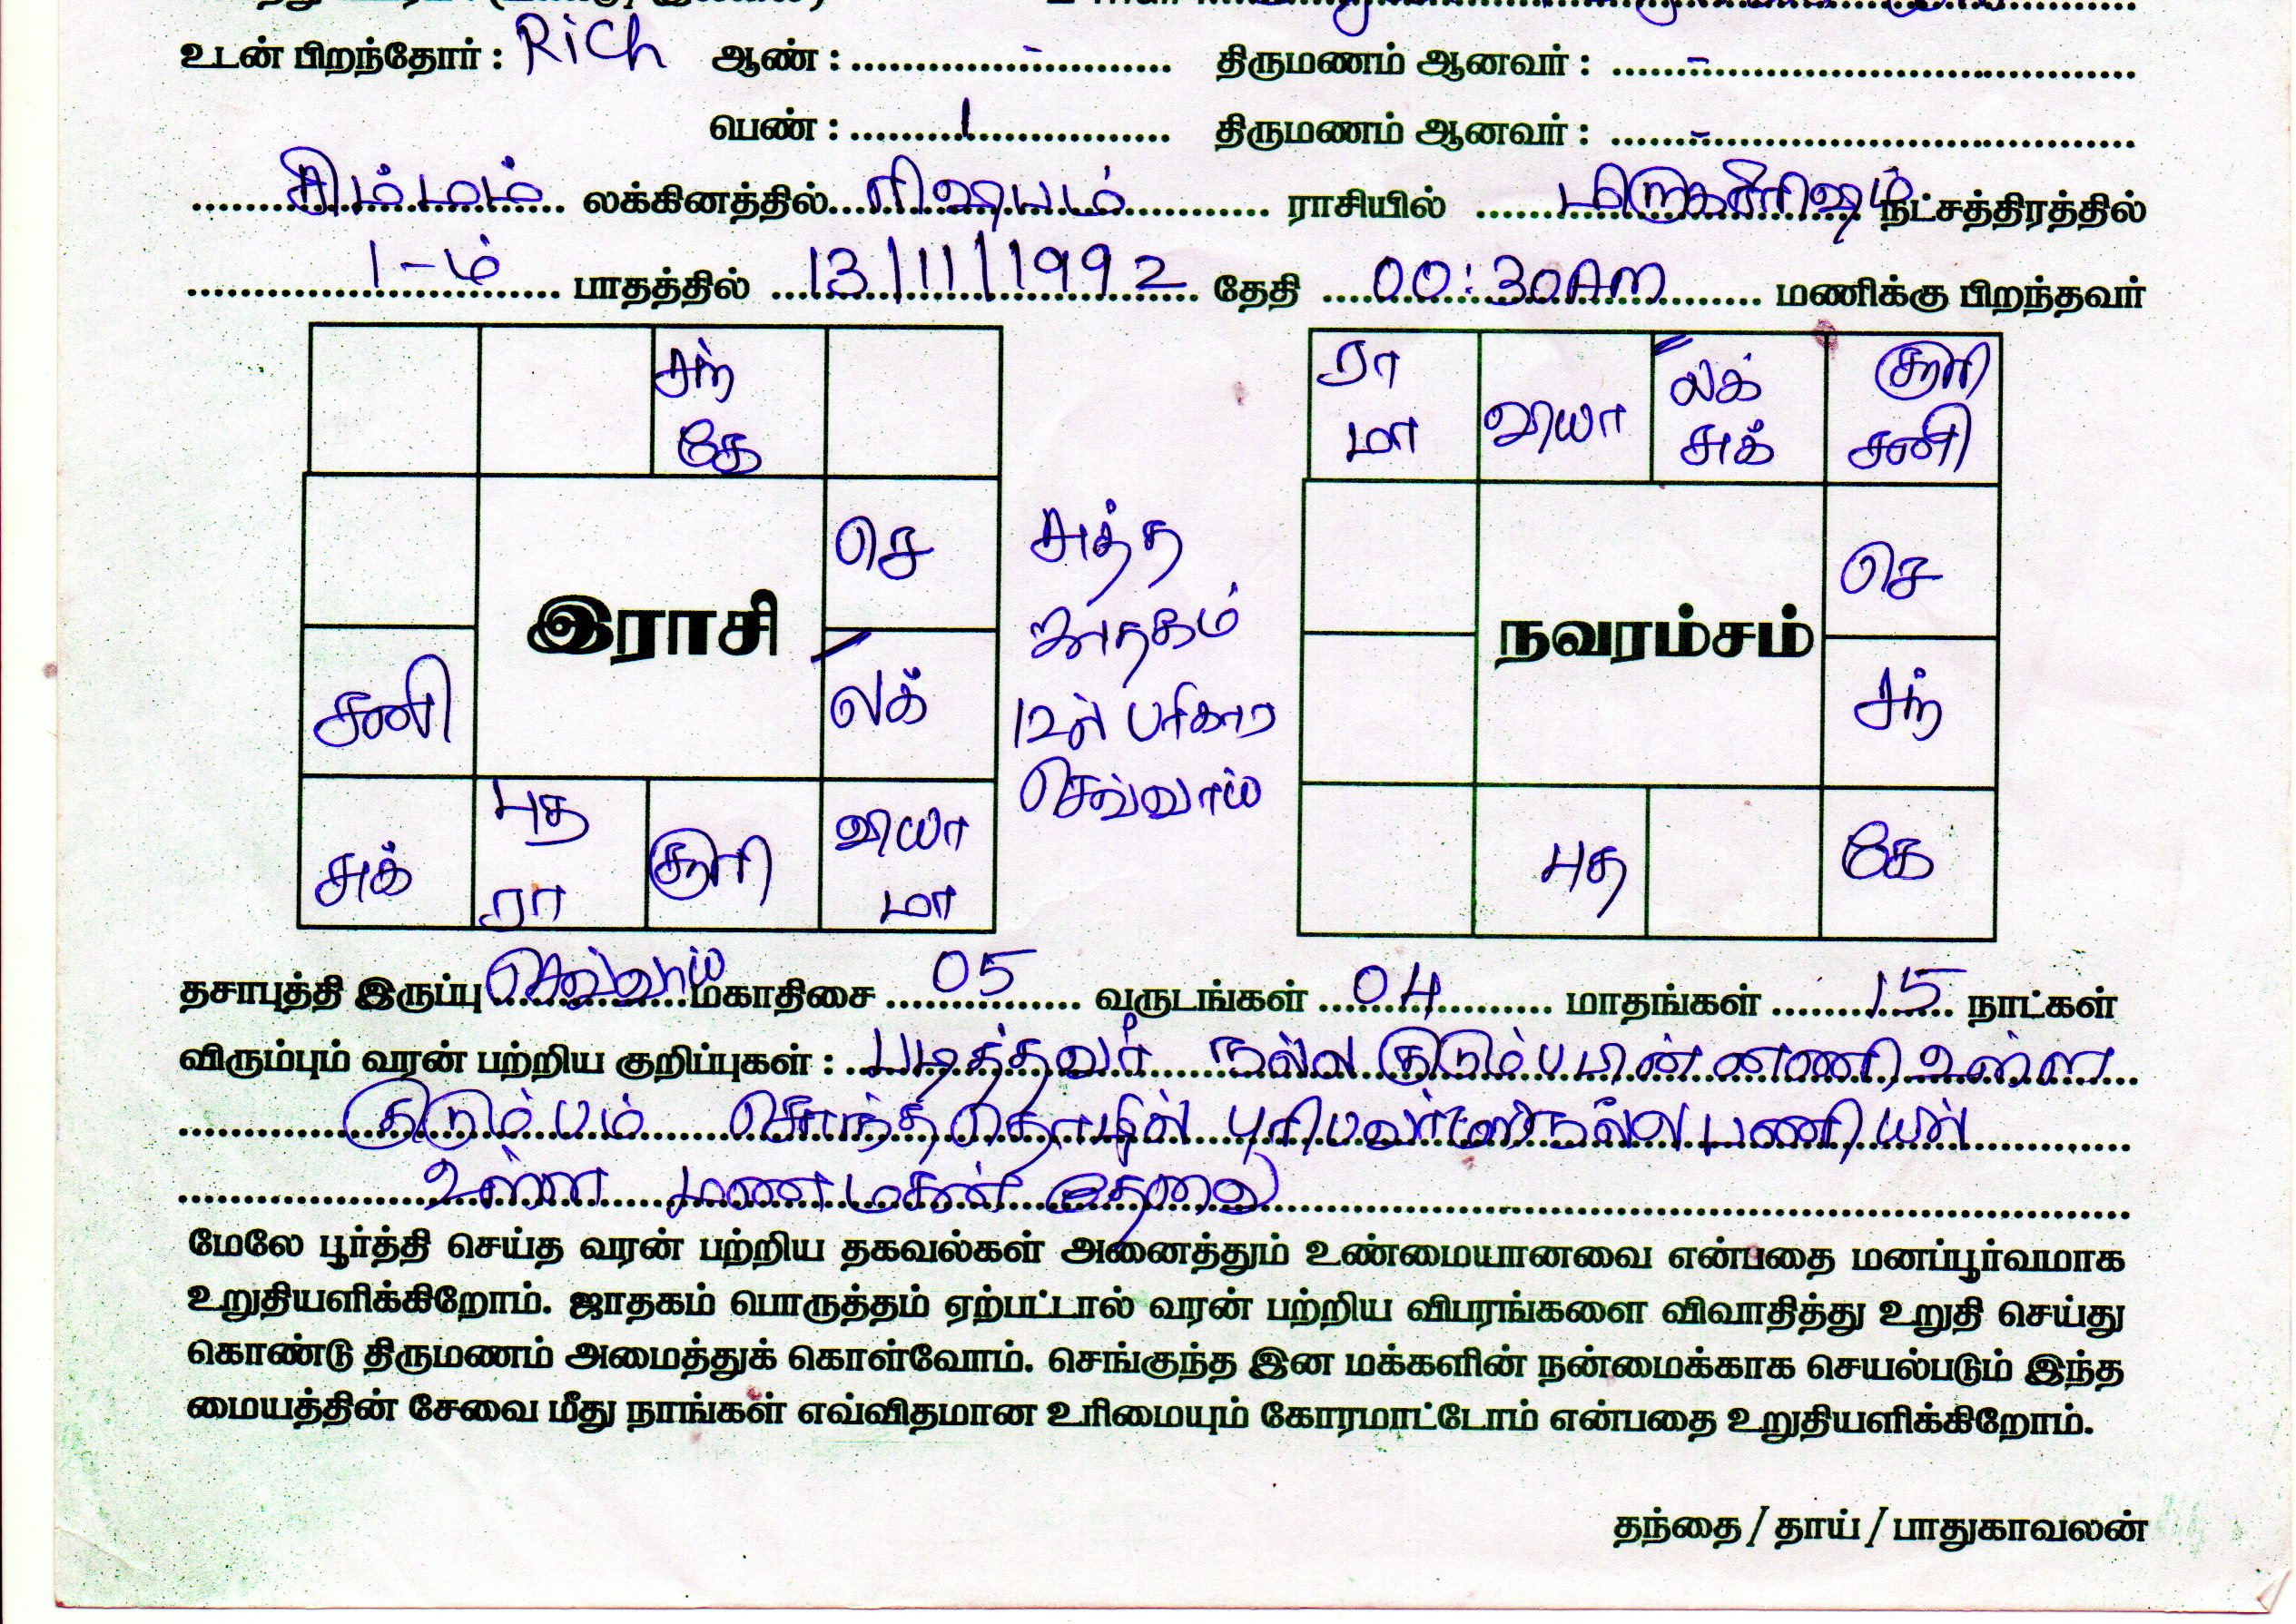 உடன் பிறந்தோர் : Rich ஆண் : - திருமணம் ஆனவர் : -
பெண் : 1 திருமணம் ஆனவர் : -
சிம்மம் லக்கினத்தில் ரிஷபம் ராசியில் மிருகசீரிஷம் நட்சத்திரத்தில்
1-ம் பாதத்தில் 13/11/1992 தேதி 00:30AM மணிக்கு பிறந்தவர்
சந்
கே
செ
இராசி
லக்
சனி
சுக்
புத
ரா
சூரி
வியா
மா
சுத்த
ஜாதகம்
12ல் பரிகார
செவ்வாய்
ரா
மா
வியா
லக்
சுக்
சூரி
சனி
செ
நவரம்சம்
சந்
புத
கே
தசாபுத்தி இருப்பு செவ்வாய் மகாதிசை 05 வருடங்கள் 04 மாதங்கள் 15 நாட்கள்
விரும்பும் வரன் பற்றிய குறிப்புகள் : படித்தவர் நல்ல குடும்ப பின்னணி உள்ள
குடும்பம் சொந்த தொழில் புரிபவர் நல்ல பணியில்
உள்ள மணமகன் தேவை
மேலே பூர்த்தி செய்த வரன் பற்றிய தகவல்கள் அனைத்தும் உண்மையானவை என்பதை மனப்பூர்வமாக
உறுதியளிக்கிறோம். ஜாதகம் பொருத்தம் ஏற்பட்டால் வரன் பற்றிய விபரங்களை விவாதித்து உறுதி செய்து
கொண்டு திருமணம் அமைத்துக் கொள்வோம். செங்குந்த இன மக்களின் நன்மைக்காக செயல்படும் இந்த
மையத்தின் சேவை மீது நாங்கள் எவ்விதமான உரிமையும் கோரமாட்டோம் என்பதை உறுதியளிக்கிறோம்.
தந்தை / தாய் / பாதுகாவலன்